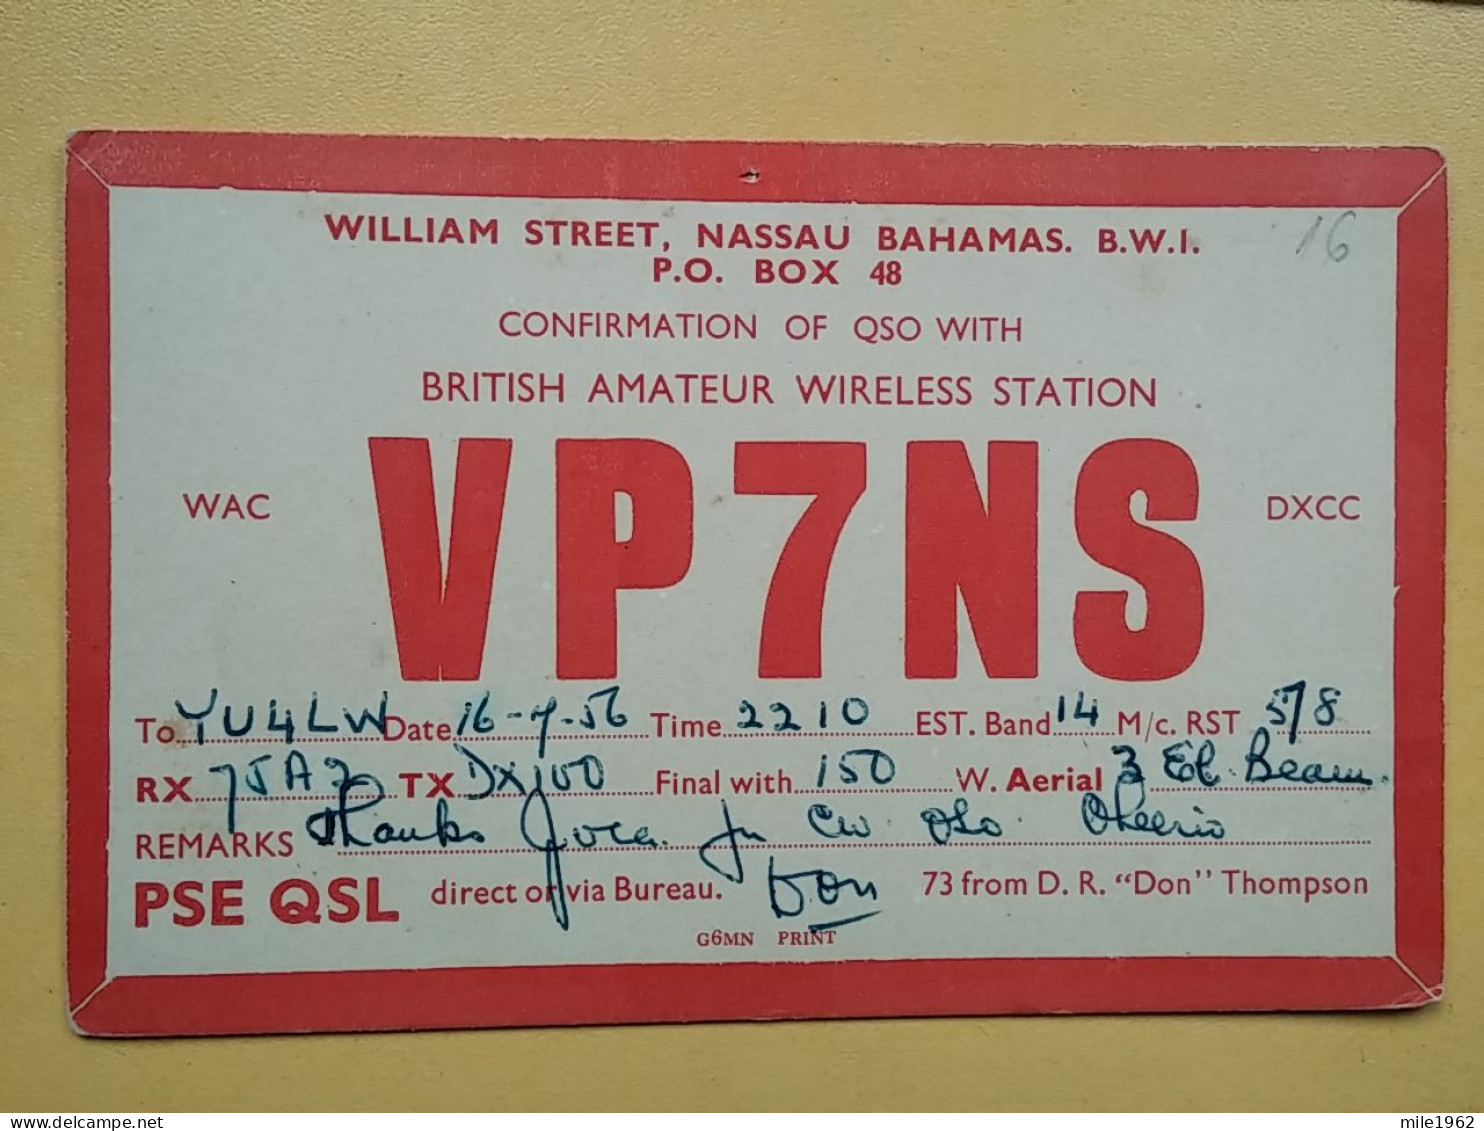 WILLIAM STREET, NASSAU BAHAMAS. B.W.I.
16
P.O. BOX 48
CONFIRMATION OF QSO WITH
BRITISH AMATEUR WIRELESS STATION
WAC VP7NS DXCC
To YU4LW Date 16-7-56 Time 2210 EST. Band 14 M/c. RST 578
RX 75A3 TX DX100 Final with 150 W. Aerial 3 El. Beam.
REMARKS Thanks Joca. fr CW. QSO. Cheerio
PSE QSL direct or via Bureau. Don 73 from D. R. "Don" Thompson
G6MN PRINT
mile1962